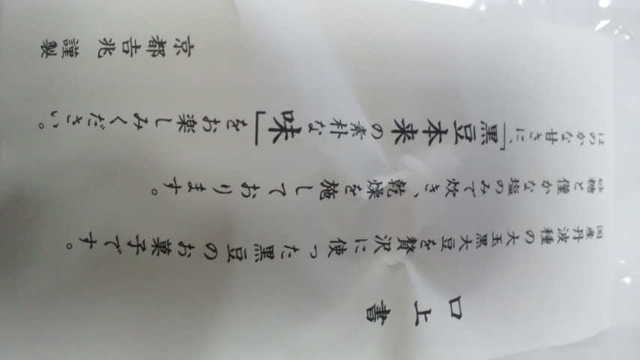 口上書
国産丹波種の大玉黒大豆を贅沢に使った黒豆のお菓子です。
砂糖と僅かな塩のみで炊き、乾燥を施しております。
ほのかな甘さに、「黒豆本来の素朴な味」をお楽しみください。
京都吉兆 謹製